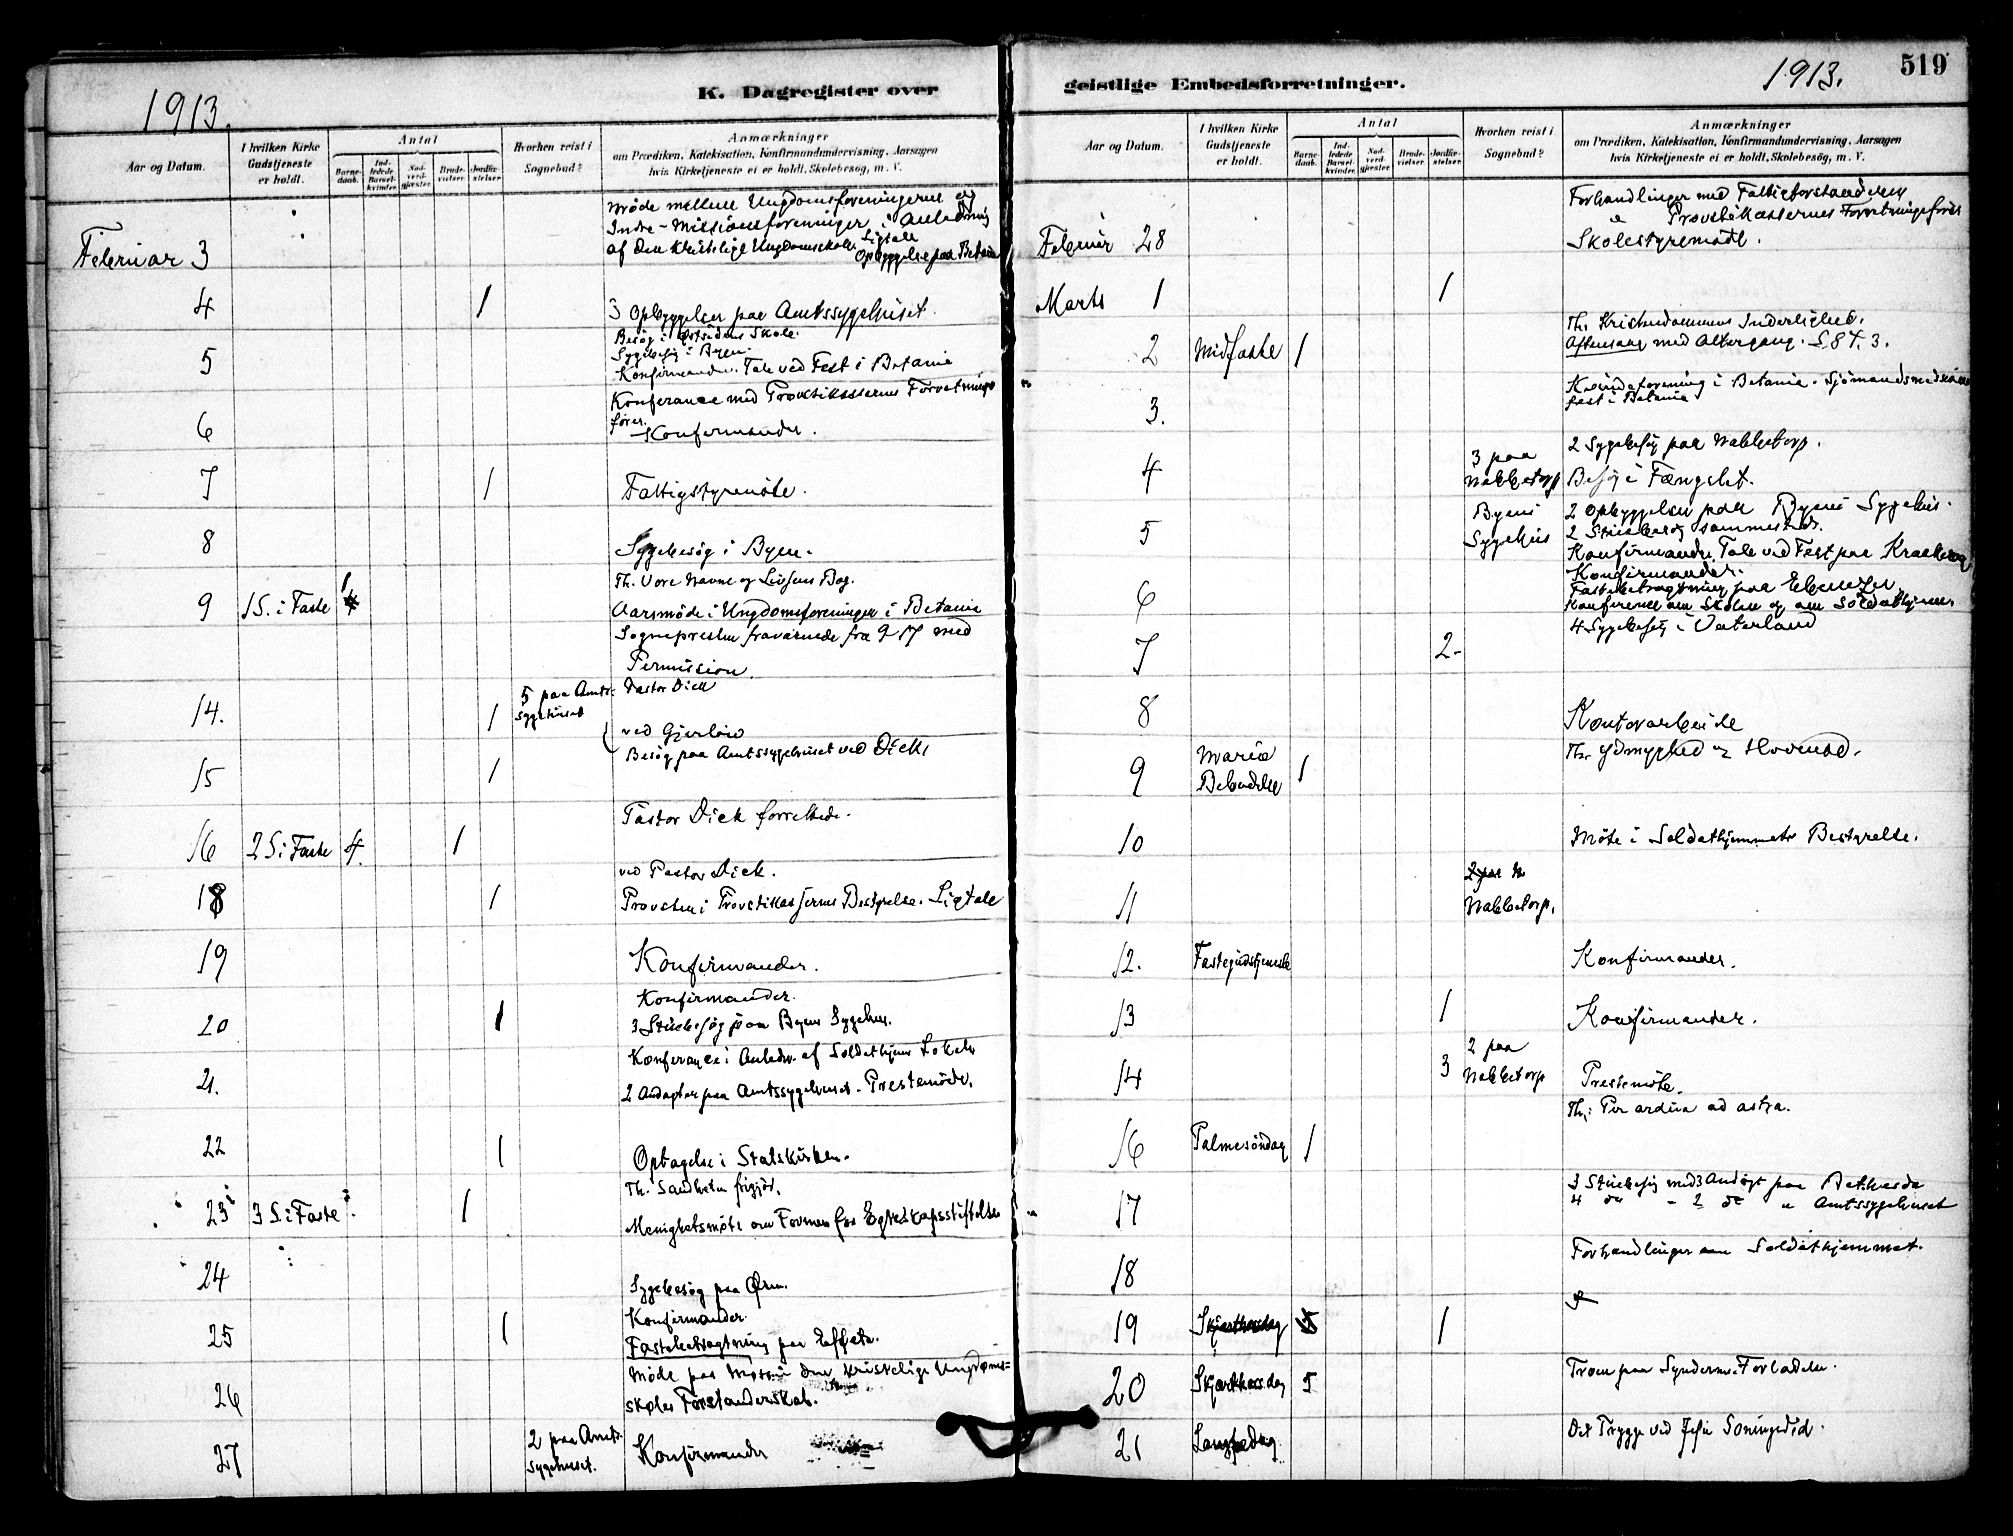 1913.
K. Dagregister over
Aar og Datum.
I hvilken Kirke Gudstjeneste er holdt.
Antal
Barne-daab.
Ind-ledede Barsel-kvinder.
Nad-verd-gjæster.
Brude-vielser.
Jordfæ-stelser.
Hvorhen reist i Sognebud?
Anmærkninger
om Prædiken, Katekisation, Konfirmandundervisning, Aarsagen
hvis Kirketjeneste ei er holdt, Skolebesøg, m. V.
Februar 3
Møde mellem Ungdomsforeningerne og
Indre-Missionsforeninger i Anledning
af den kristelige Ungdomsskole Ligtale
Opbyggelse paa Betania
4 1 3 Opbyggelser paa Amtssygehuset.
Besøg i Østsidens Skole.
5 Sygebesøg i Byen.
Konfirmander. Tale ved Fest i Betania
6 Konferance med Provstikassernes Forretnings
fører.
Konfirmander.
7 1 Fattigstyremøte.
8 Sygebesøg i Byen.
Th. Vore Navne og Livsens Bog.
9 1 S. i Faste
Aarsmøde i Ungdomsforeninger i Betania
Sognepresten fraværende fra 9-17 med
Permission.
14. 1 5 paa Amts-
sygehuset
Pastor Dick
ved Gjerløw
15 1 Besøg paa Amtssygehuset ved Dick
16 2 S. i Faste 4. 1 Pastor Dick forrettede.
ved Pastor Dick.
18 1 Provsten i Provstikassernes Bestyrelse. Ligtale
19 Konfirmander.
Konfirmander.
20 1 3 Stuebesøg paa Byens Sygehus.
Konferance i Anledn. af Soldathjem Lokale
21. 2 Andagter paa Amtssygehuset. Prestemøde.
22 1 Optagelse i Statskirken.
Th. Sandheten frigjør.
23 3 S. i Faste 1
Menighetsmøte om Formen for Egteskapsstiftelse
24 Sygebesøg paa Øren.
Konfirmander.
25 1 Fastebetragtning paa Effata.
26 Møde paa Moss i den kristelige Ungdoms=
skoles Forstanderskab.
27 2 paa Amts-
sygehuset.
Konfirmander
geistlige Embedsforretninger.
1913.
519
Aar og Datum.
I hvilken Kirke Gudstjeneste er holdt.
Antal
Barne-daab.
Ind-ledede Barsel-kvinder.
Nad-verd-gjæster.
Brude-vielser.
Jordfæ-stelser.
Hvorhen reist i Sognebud?
Anmærkninger
om Prædiken, Katekisation, Konfirmandundervisning, Aarsagen
hvis Kirketjeneste ei er holdt, Skolebesøg, m. V.
Forhandlinger med Fattigforstanderen
" Provstikassernes Forretningsfører
Februar 28 Skolestyremøte.
Marts 1 1
Th. Kristendommens Inderlighed.
2 Midfaste 1 Aftensang med Altergang. S. 8 T. 3.
3. Kvindeforening i Betania. Sjømandsmissions
fest i Betania
2 Sygebesøg paa Nabbetorp.
4 3 paa
Nabbetorp
Besøg i Fængslet.
5 Byens
Sygehus
2 Opbyggelser paa Byens Sygehus.
2 Stuebesøg sammesteds.
Konfirmander. Tale ved Fest paa Krakerøy
Konfirmander.
6 Fastebetragtning paa Ebenezer
Konference om Skolen og om Soldathjem
7 2- 4 Sygebesøg i Vaterland
8 Kontorarbeide
9 Mariæ
Bebudelse
1 Th. Ydmyghed og Hovmod.
10 Møte i Soldathjemmets Bestyrelse.
11 Nabbetorp.
12. Fastegudstjeneste Konfirmander.
13 1 Konfirmander.
14 3 2 paa
Nabbetorp
Prestemøte.
Th: Per ardua ad astra.
16 Palmesøndag 1
17 3 Stuebesøg med 3 Andagt paa Bethesda
4 do - 2 do " Amtssygehuset
18 Forhandlinger om Soldathjemmet.
19 Skjærthorsdag 1
20 Skjærthorsdag 5 Troen paa Syndernes Forladelse.
21 Langfredag Det Trygge ved Jesu Soningsdød.